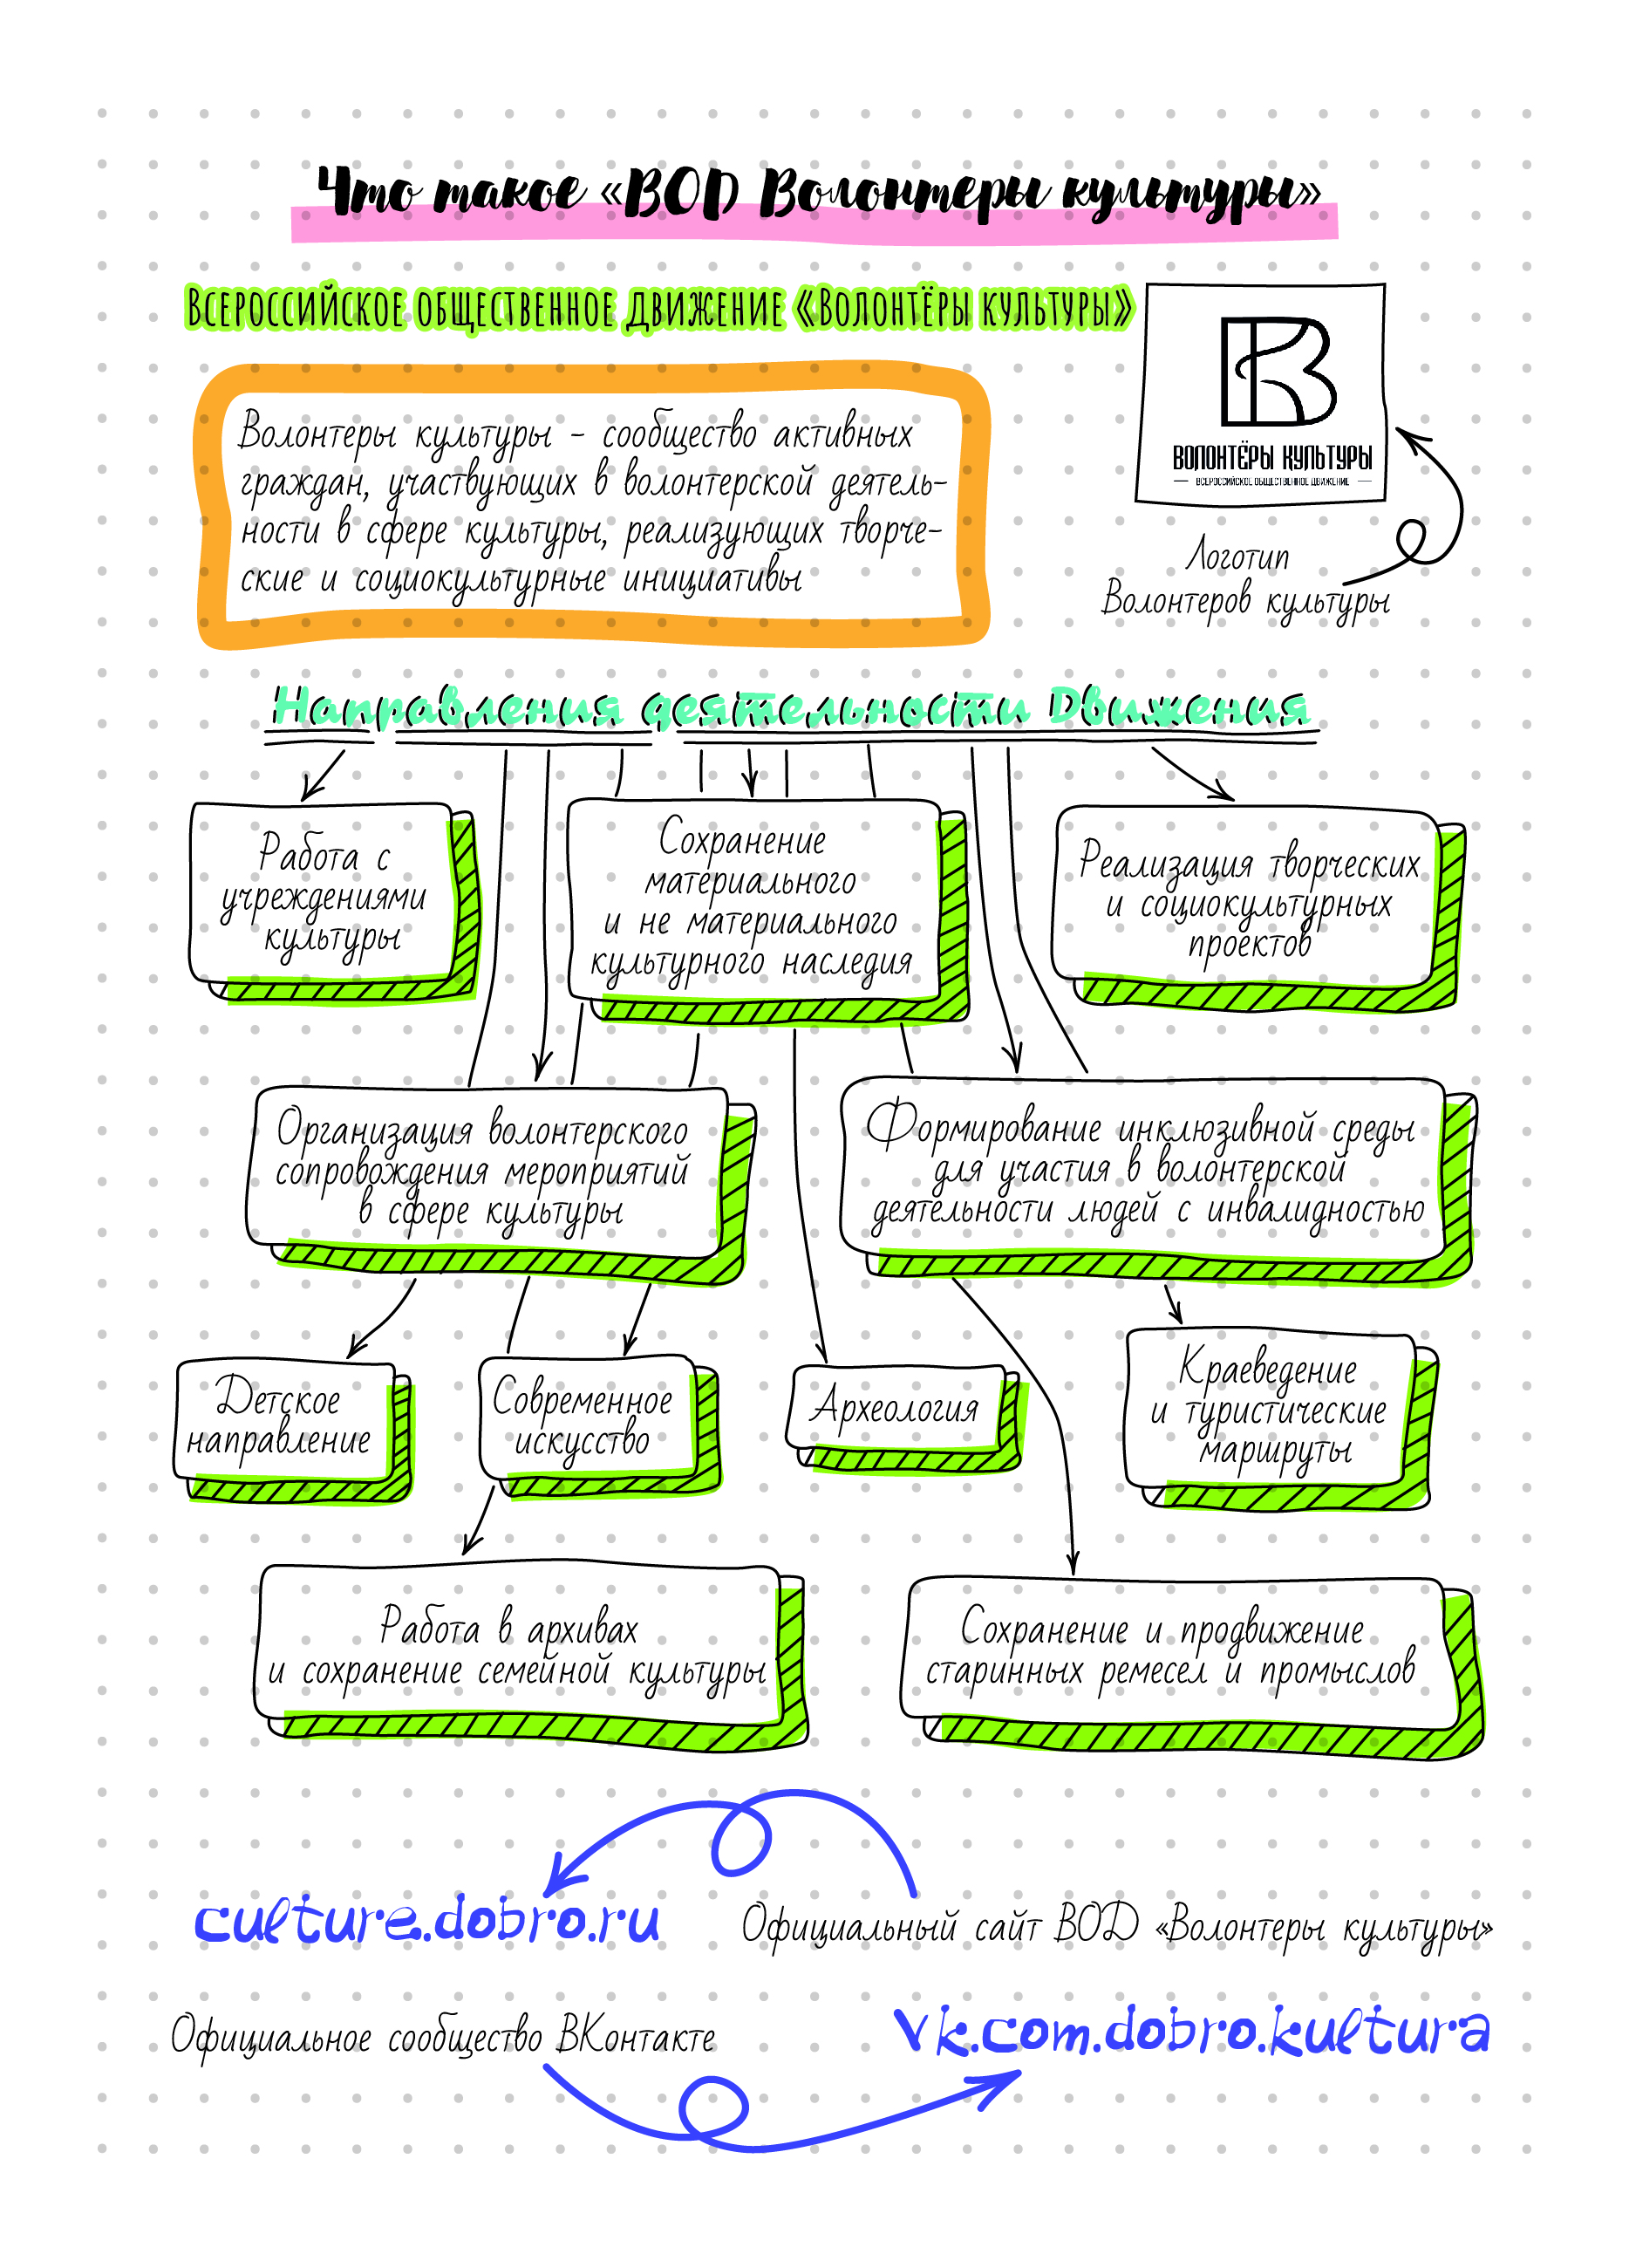 Что такое «ВОД Волонтеры культуры»
Всероссийское общественное движение «Волонтёры культуры»
Волонтеры культуры - сообщество активных
граждан, участвующих в волонтерской деятель-
ности в сфере культуры, реализующих творче-
ские и социокультурные инициативы
ВОЛОНТЁРЫ КУЛЬТУРЫ
ВСЕРОССИЙСКОЕ ОБЩЕСТВЕННОЕ ДВИЖЕНИЕ
Логотип
Волонтеров культуры
Направления деятельности Движения
Работа с
учреждениями
культуры
Сохранение
материального
и не материального
культурного наследия
Реализация творческих
и социокультурных
проектов
Организация волонтерского
сопровождения мероприятий
в сфере культуры
Формирование инклюзивной среды
для участия в волонтерской
деятельности людей с инвалидностью
Детское
направление
Современное
искусство
Археология
Краеведение
и туристические
маршруты
Работа в архивах
и сохранение семейной культуры
Сохранение и продвижение
старинных ремесел и промыслов
culture.dobro.ru
Официальный сайт ВОД «Волонтеры культуры»
Официальное сообщество ВКонтакте
vk.com.dobro.kultura